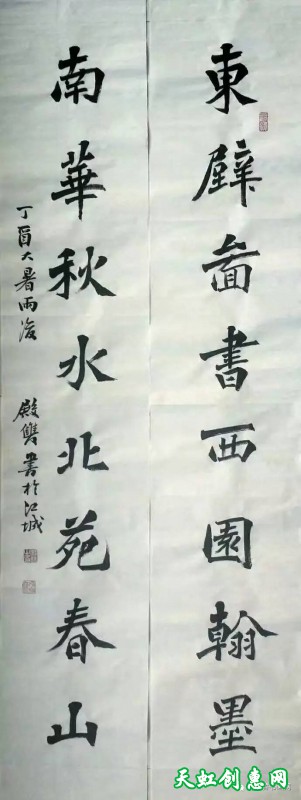 東壁啚書西園翰墨
南華秋水北苑春山
丁酉大暑雨後
殿雙書於江城
天虹创惠网